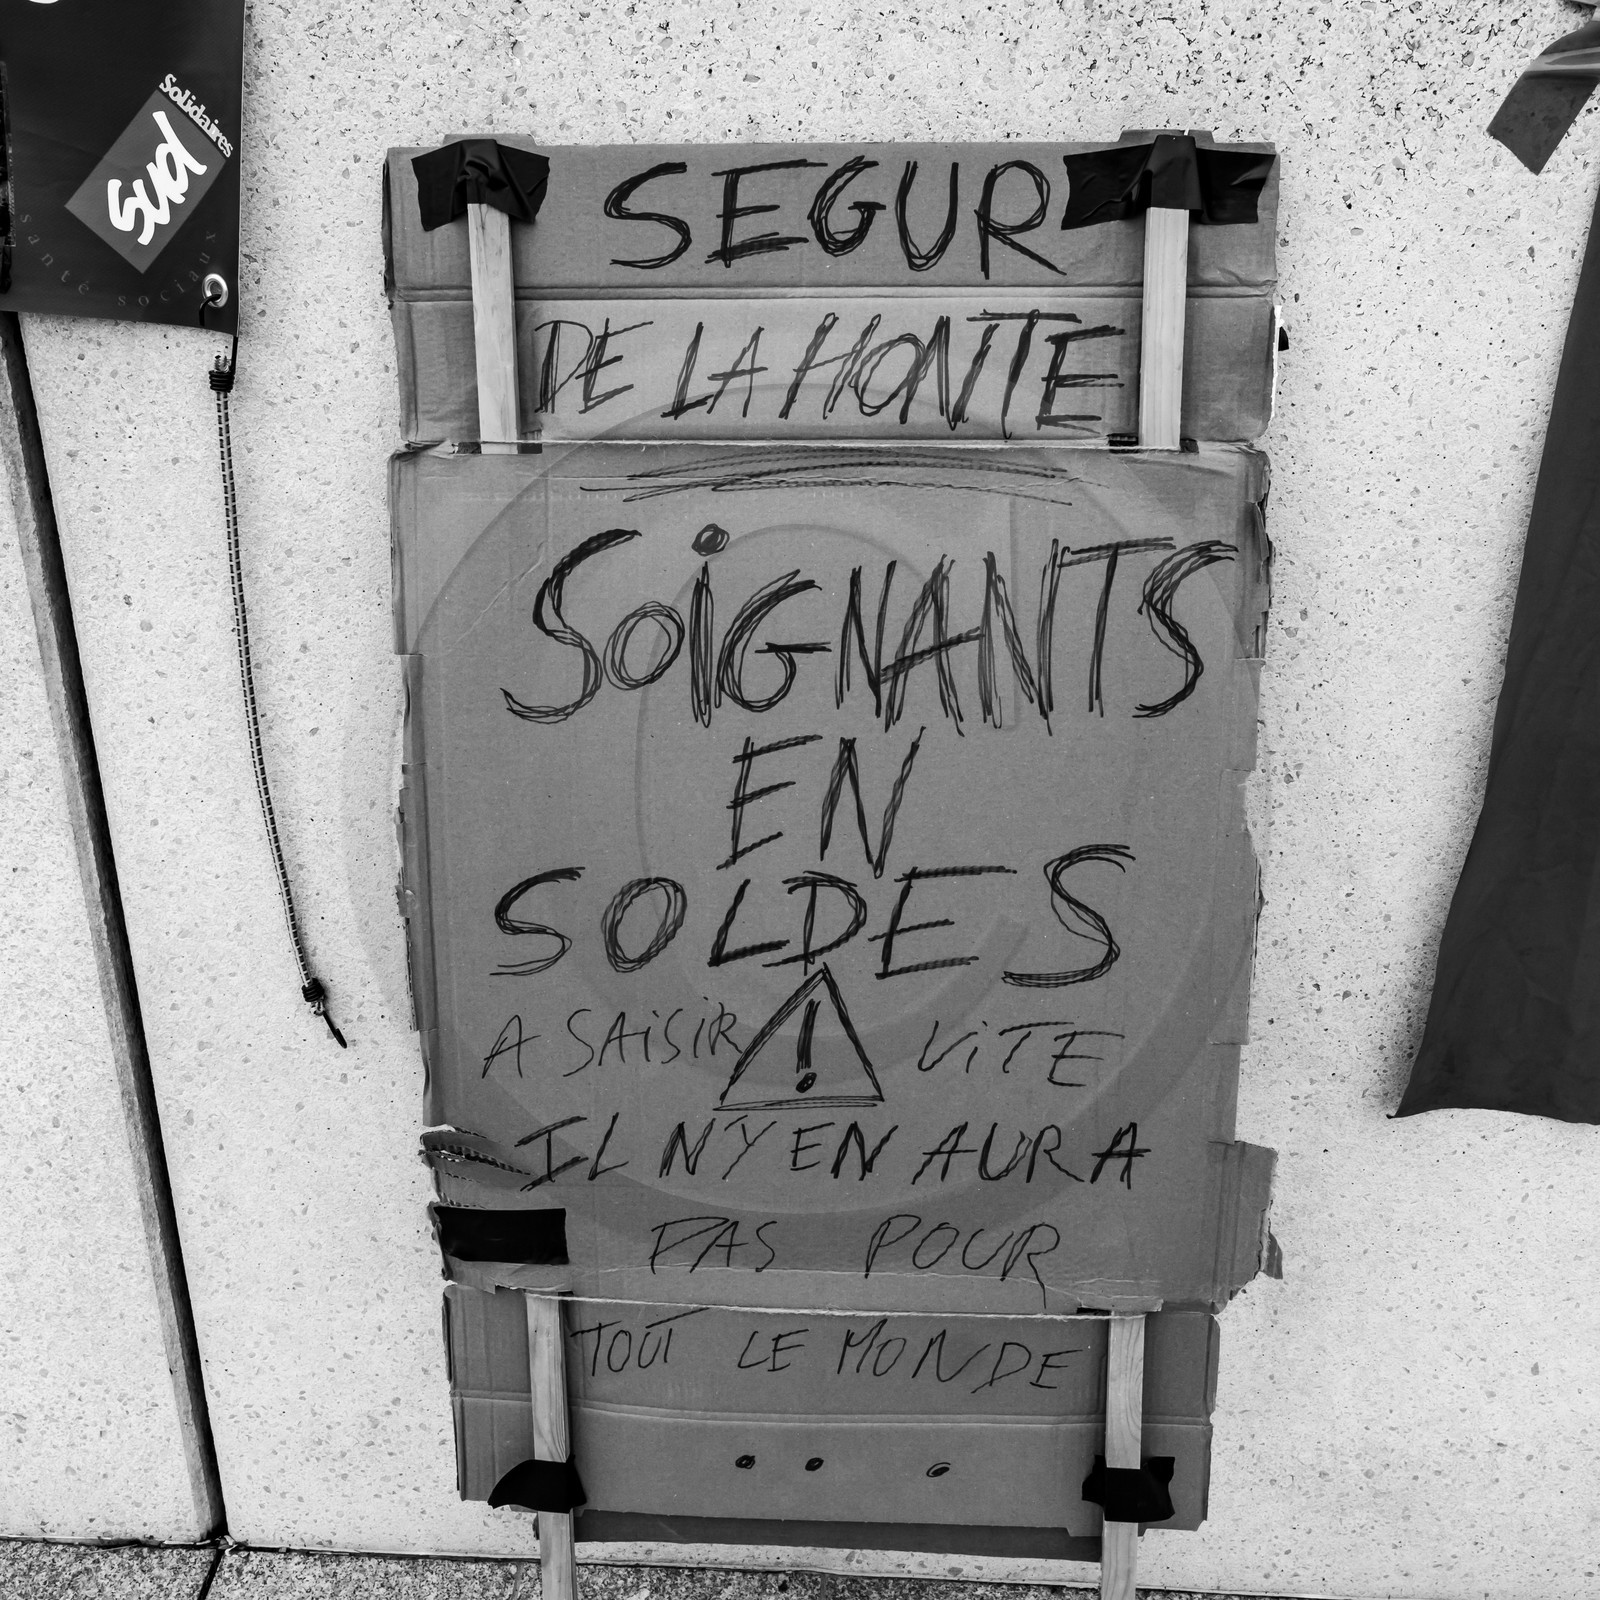 Solidaires
Sud
santé sociaux
SEGUR
DE LA HONTE
SOiGNANTS
EN
SOLDES
A SAiSiR ! ViTE
IL N'Y EN AURA
PAS POUR
TOUT LE MONDE
...